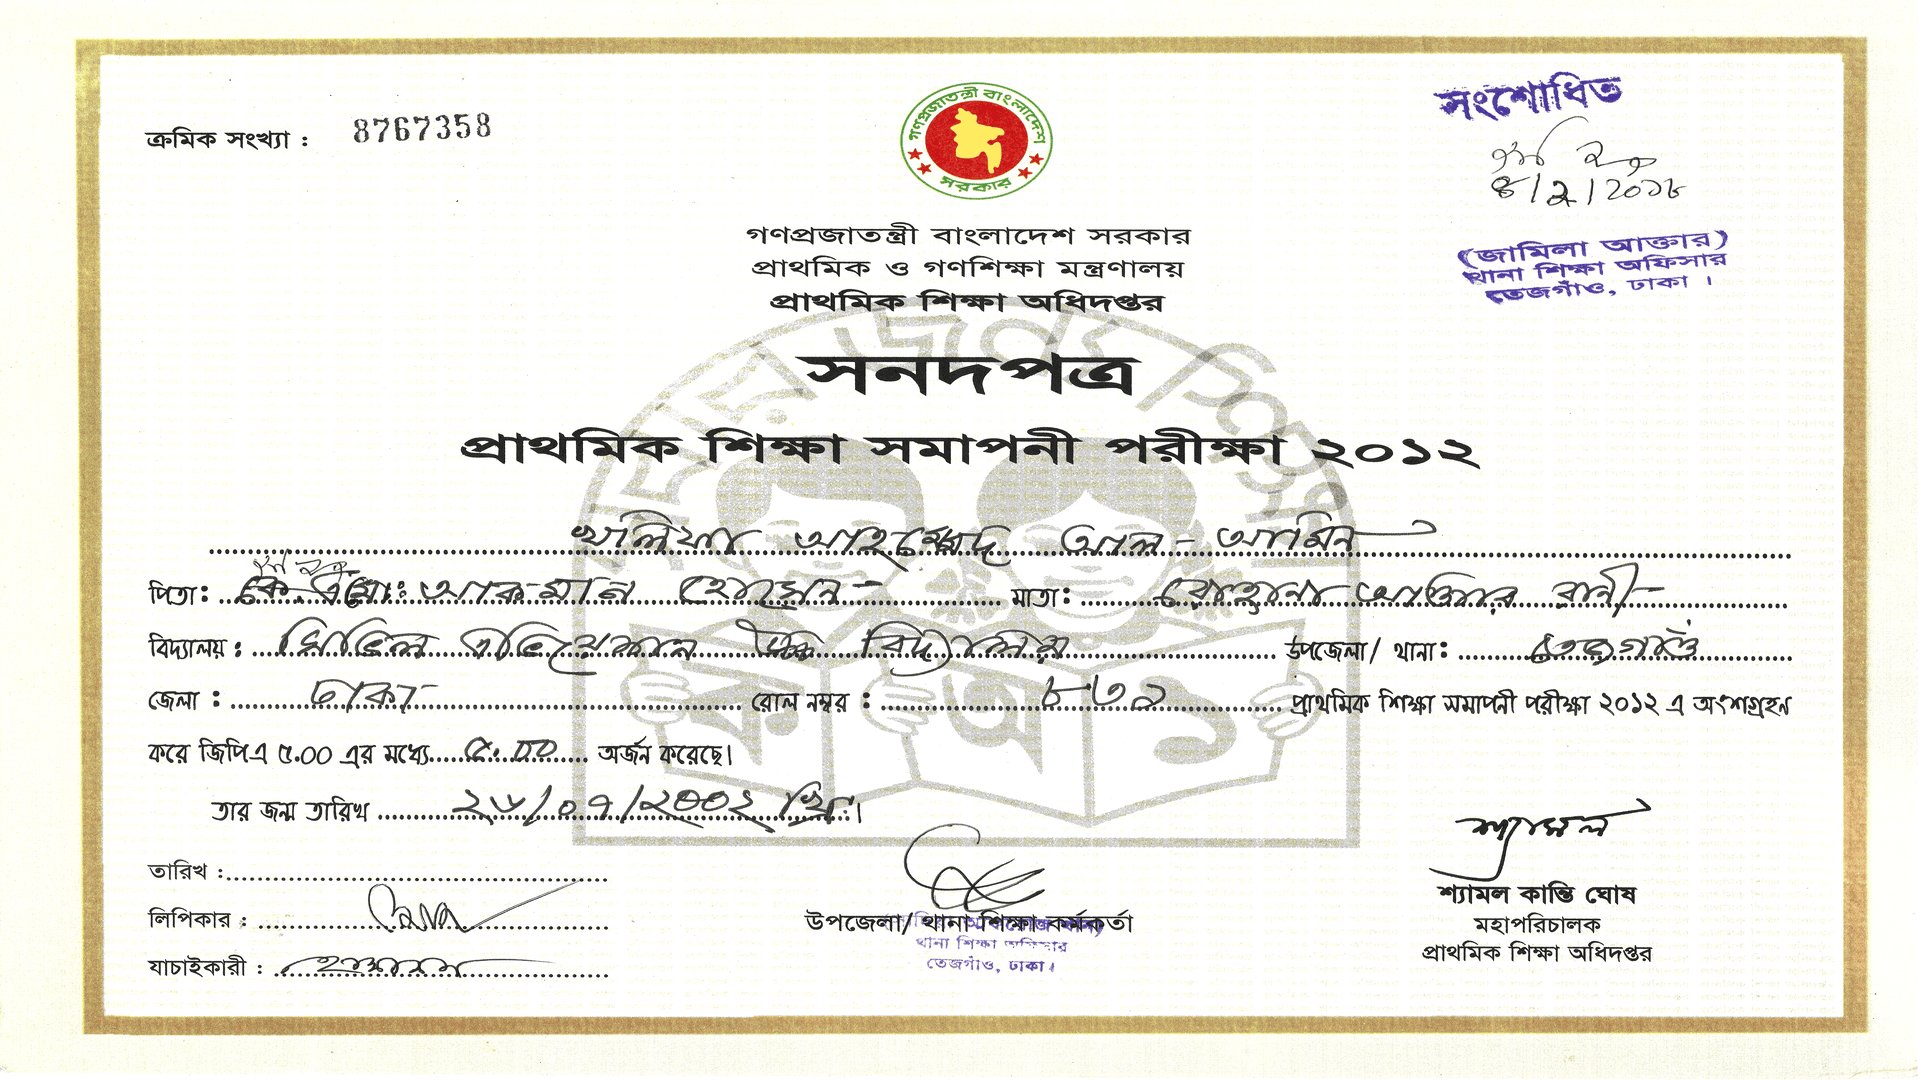 ক্রমিক সংখ্যা : 8767358
গণপ্রজাতন্ত্রী বাংলাদেশ
সরকার
সংশোধিত
৪/২/২০১৮
(জামিলা আক্তার)
থানা শিক্ষা অফিসার
তেজগাঁও, ঢাকা ।
গণপ্রজাতন্ত্রী বাংলাদেশ সরকার
প্রাথমিক ও গণশিক্ষা মন্ত্রণালয়
প্রাথমিক শিক্ষা অধিদপ্তর
সনদপত্র
প্রাথমিক শিক্ষা সমাপনী পরীক্ষা ২০১২
খলিফা আহম্মেদ আল-আমিন
পিতা: কে. এম. আরমান হোসেন মাতা: রোহানা আক্তার রানী
বিদ্যালয় : সিভিল এভিয়েশন উচ্চ বিদ্যালয় উপজেলা/ থানা: তেজগাঁও
জেলা : ঢাকা রোল নম্বর : ৮৩৯ প্রাথমিক শিক্ষা সমাপনী পরীক্ষা ২০১২ এ অংশগ্রহন
করে জিপিএ ৫.০০ এর মধ্যে ৫.০০ অর্জন করেছে।
তার জন্ম তারিখ ২৬/০৭/২০০২ খ্রি:।
তারিখ :
লিপিকার :
যাচাইকারী :
উপজেলা/ থানা শিক্ষা কর্মকর্তা
থানা শিক্ষা অফিসার
তেজগাঁও, ঢাকা।
শ্যামল
শ্যামল কান্তি ঘোষ
মহাপরিচালক
প্রাথমিক শিক্ষা অধিদপ্তর
সবার জন্য শিক্ষা
ক অ ১